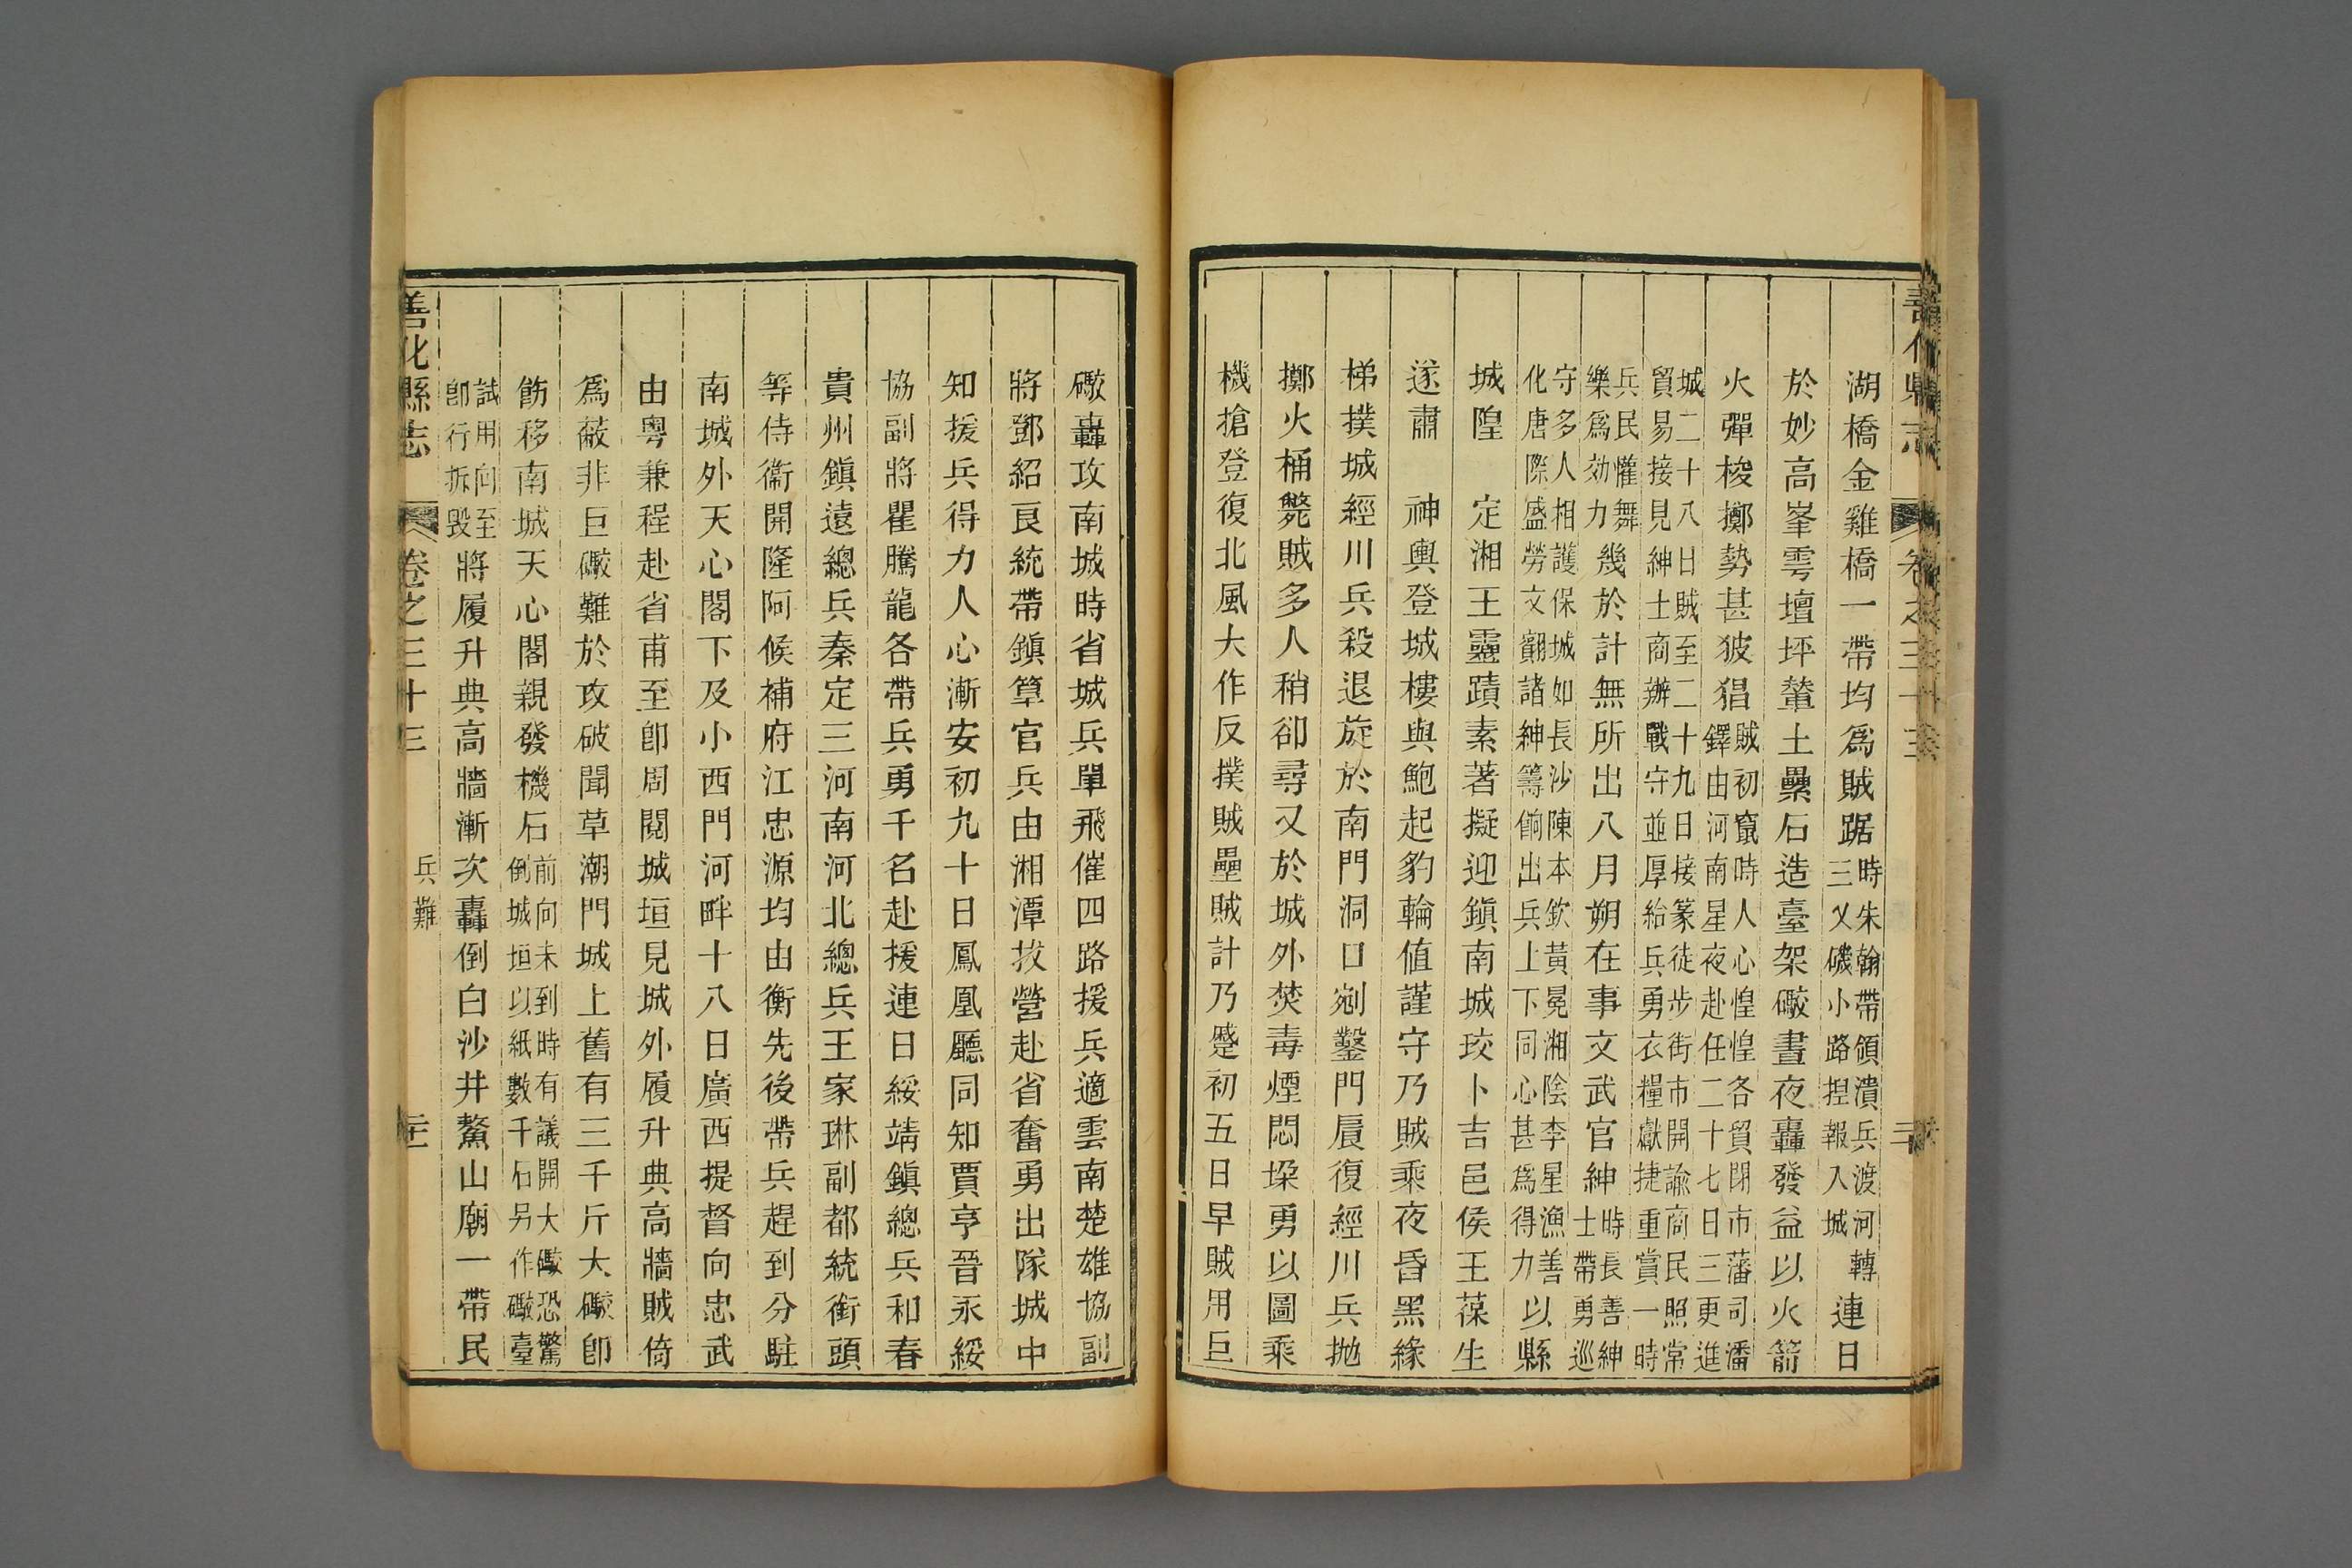 善化縣志 卷之三十三
湖橋金雞橋一帶均爲賊踞時朱翰帶領潰兵渡河轉三乂磯小路揑報入城連日
於妙高峯雩壇坪輦土壘石造臺架礮晝夜轟發益以火箭
火彈梭擲勢甚狓猖賊初竄時人心惶惶各貿閉市藩司潘鐸由河南星夜赴任二十七日三更進
城二十八日賊至二十九日接篆徒步街市開諭商民照常貿易接見紳士商辦戰守並厚給兵勇衣糧獻捷重賞一時
兵民懽舞樂爲効力幾於計無所出八月朔在事文武官紳時長善紳士帶勇巡
守多人相護保城如長沙陳本欽黃冕湘陰李星漁善化唐際盛勞文翿諸紳籌餉出兵上下同心甚爲得力以縣
城隍 定湘王靈蹟素著擬迎鎮南城珓卜吉邑侯王葆生
遂肅 神輿登城樓與鮑起豹輪值謹守乃賊乘夜昏黑緣
梯撲城經川兵殺退旋於南門洞口剜鑿門扆復經川兵抛
擲火桶斃賊多人稍卻尋又於城外焚毒煙悶垛勇以圖乘
機搶登復北風大作反撲賊壘賊計乃蹙初五日早賊用巨
礮轟攻南城時省城兵單飛催四路援兵適雲南楚雄協副
將鄧紹良統帶鎮筸官兵由湘潭拔營赴省奮勇出隊城中
知援兵得力人心漸安初九十日鳳凰廳同知賈亨晉永綏
協副將瞿騰龍各帶兵勇千名赴援連日綏靖鎮總兵和春
貴州鎮遠總兵秦定三河南河北總兵王家琳副都統銜頭
等侍衞開隆阿候補府江忠源均由衡先後帶兵趕到分駐
南城外天心閣下及小西門河畔十八日廣西提督向忠武
由粵兼程赴省甫至卽周閱城垣見城外履升典高牆賊倚
爲蔽非巨礮難於攻破聞草潮門城上舊有三千斤大礮卽
飭移南城天心閣親發機石前向未到時有議開大礮恐驚倒城垣以紙數千石另作礮臺
試用向至卽行拆毀將履升典高牆漸次轟倒白沙井鰲山廟一帶民
善化縣志 卷之三十三 兵難